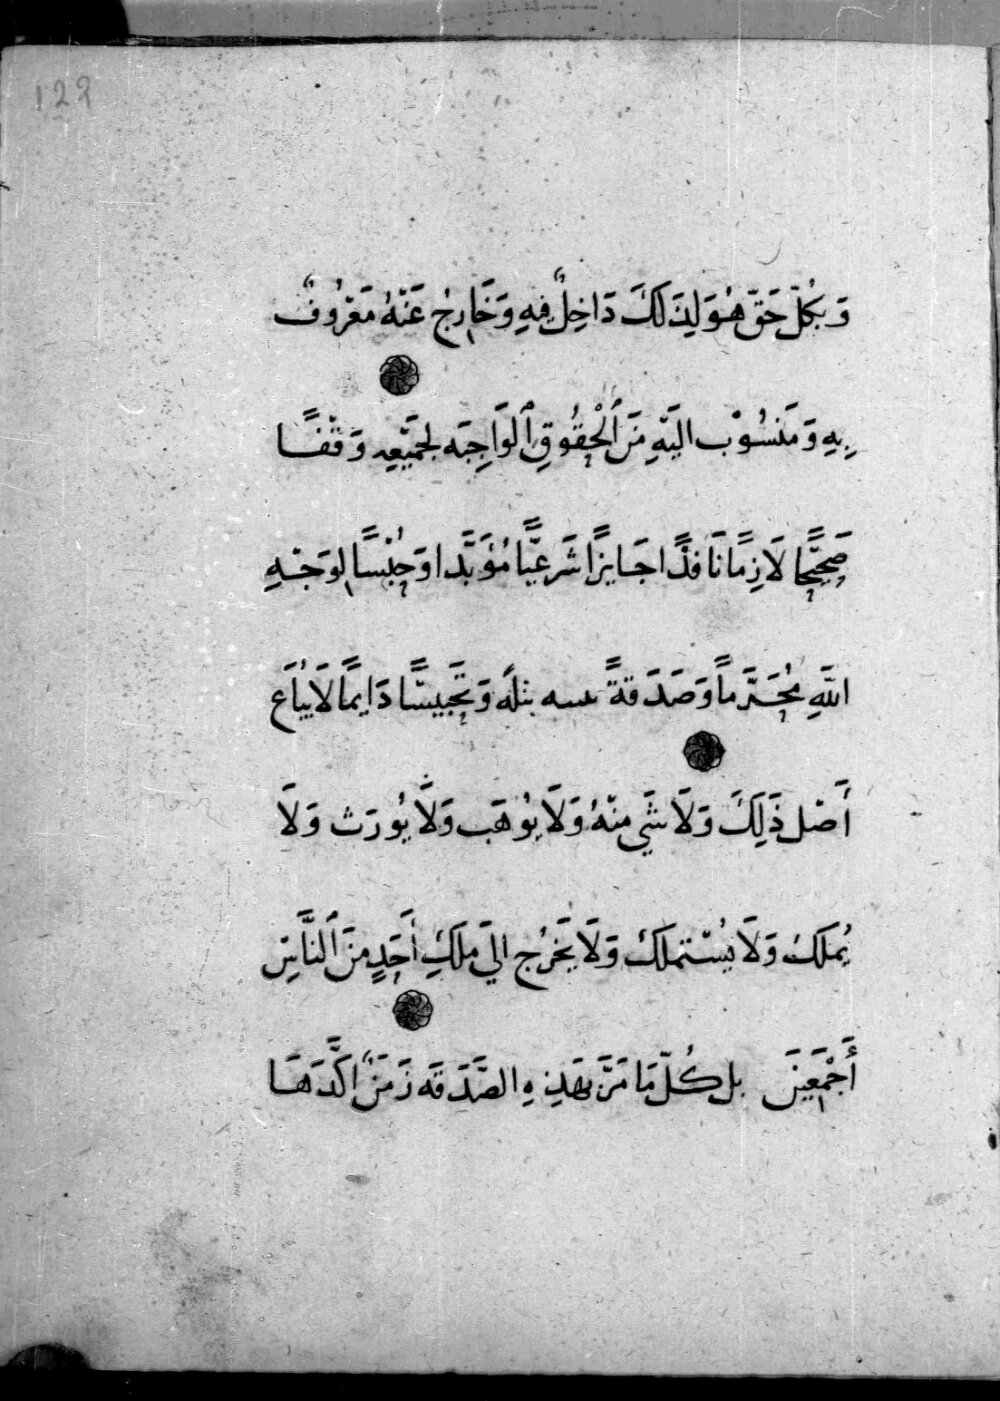 129
وَبِكُلِّ حَقّ هُوَ لِذَلِكَ دَاخِلٌ فِيهِ وَخَارِجٌ عَنْهُ مَعْرُوفٌ
بِهِ وَمَنسُوْب اليَهِ مِنَ ٱلْحُقُوقِ ٱلوَاجِبَه لجمَيْعِه وَقْفًا
صَحِيْحًا لَازِمًا نَافِذًا جَايزًا شَرعيًّا مُؤَبَّدا وَحُبْسًا لِوَجْهِ
اللَّهِ مُحَرَّماً وَصَدَقَةً بتلَةً وَتَحْبيسًا دَايمًا لَا يُبَاَع
أَصْل ذَلِكَ وَلَا شَي مِنْهُ وَلَا يُوهَب وَلَا يُورَث وَلَا
يُملَكُ وَلَا يُسْتملكُ وَلَا يَخَرُج الىَ مِلَكِ أَحَدٍ مِنَ ٱلنَّاسِ
أَجْمَعِينَ بل كُلّمَا مَرَّ بهَذِهِ الصَّدَقَه زَمَنٌ اكَّدَهَا